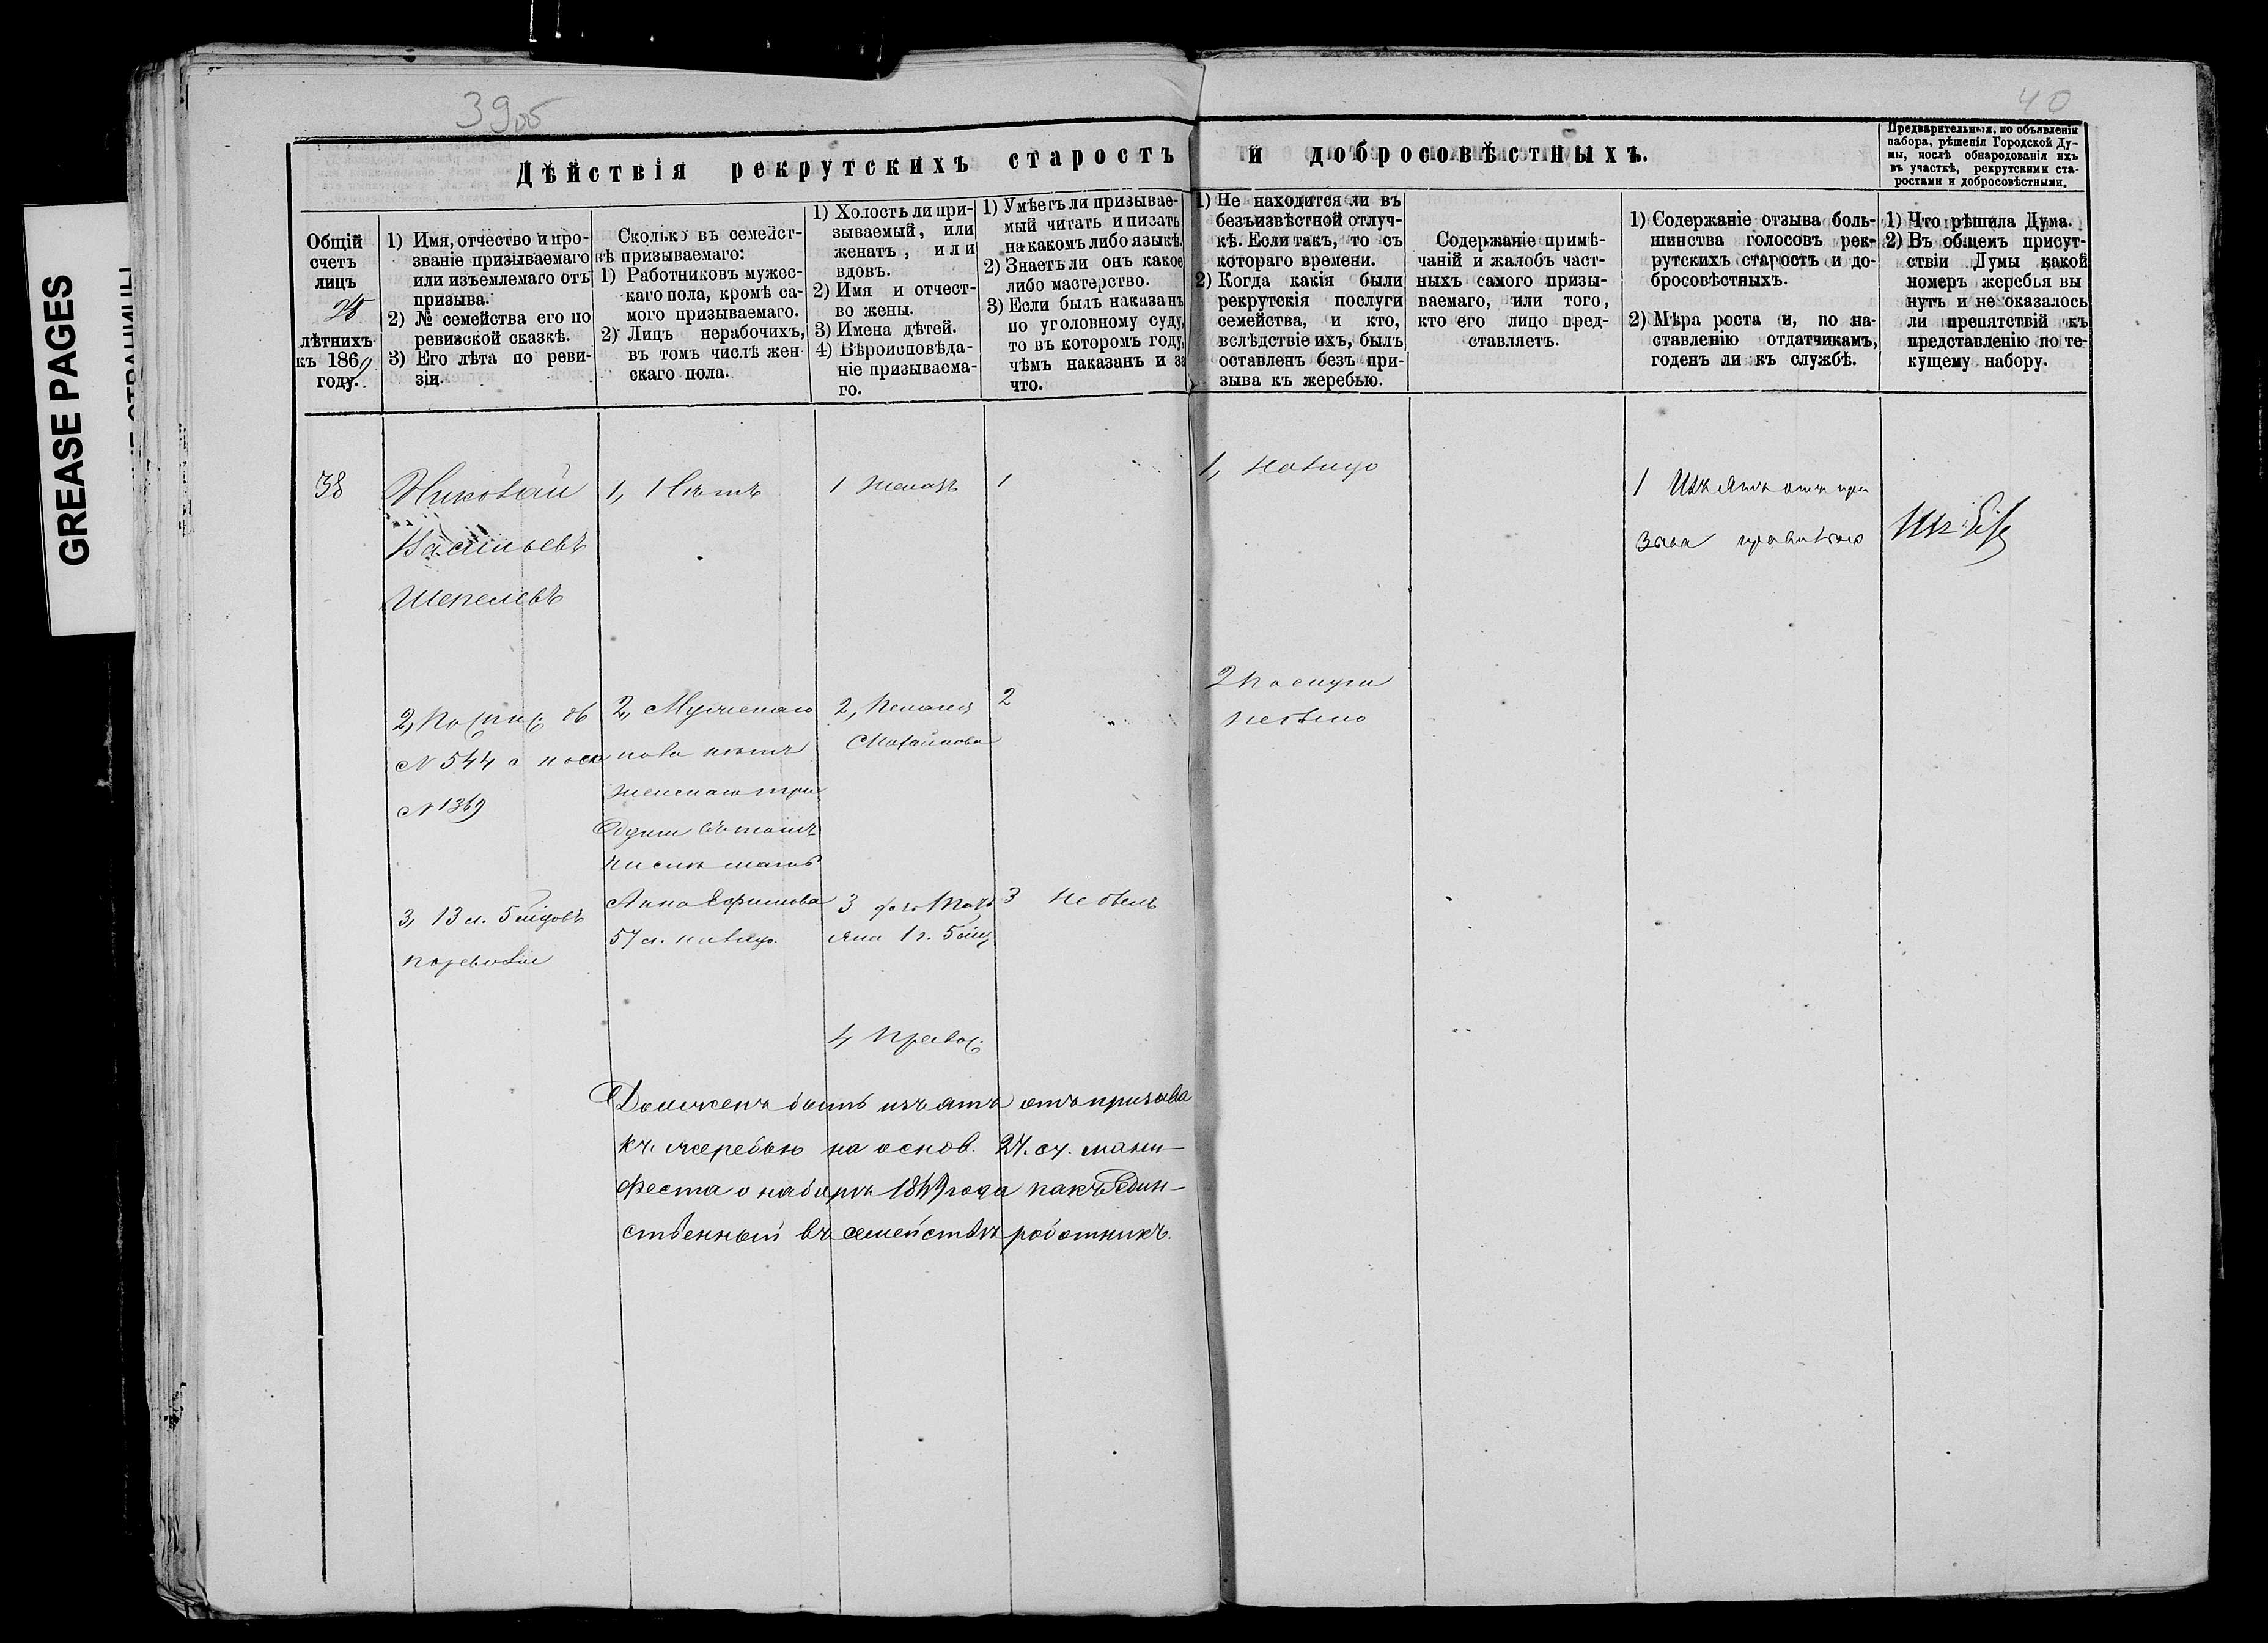 GREASE PAGES
39 об
40
Дѣйствія рекрутскихъ старостъ и добросовѣстныхъ.
Предварительныя, по объявленіи
набора, рѣшенія Городской Ду-
мы, послѣ обнародованія ихъ
въ участкѣ, рекрутскими ста-
ростами и добросовѣстными.
Общій
счетъ
лицъ
25
лѣтнихъ
къ 1869
году.
1) Имя, отчество и про-
званіе призываемаго
или изъемлемаго отъ
призыва.
2) № семейства его по
ревизской сказкѣ.
3) Его лѣта по реви-
зіи.
Сколько въ семейст-
вѣ призываемаго:
1) Работниковъ мужес-
каго пола, кромѣ са-
мого призываемаго.
2) Лицъ нерабочихъ,
въ томъ числѣ жен-
скаго пола.
1) Холостъ ли при-
зываемый, или
женатъ, или
вдовъ.
2) Имя и отчест-
во жены.
3) Имена дѣтей.
4) Вѣроисповѣда-
ніе призываема-
го.
1) Умѣетъ ли призывае-
мый читать и писать
на какомъ либо языкѣ.
2) Знаетъ ли онъ какое
либо мастерство.
3) Если былъ наказанъ
по уголовному суду,
то въ которомъ году,
чѣмъ наказанъ и за
что.
1) Не находится ли въ
безъизвѣстной отлуч-
кѣ. Если такъ, то съ
котораго времени.
2) Когда какія были
рекрутскія послуги
семейства, и кто,
вслѣдствіе ихъ, былъ
оставленъ безъ при-
зыва къ жеребью.
Содержаніе примѣ-
чаній и жалобъ част-
ныхъ самого призы-
ваемаго, или того,
кто его лицо пред-
ставляетъ.
1) Содержаніе отзыва боль-
шинства голосовъ рек-
рутскихъ старостъ и до-
бросовѣстныхъ.
2) Мѣра роста и, по на-
ставленію отдатчикамъ,
годенъ ли къ службѣ.
1) Что рѣшила Дума.
2) Въ общемъ присут-
ствіи Думы какой
номеръ жеребья вы
нутъ и не оказалось
ли препятствій къ
представленію по те-
кущему набору.
38
Николай
Васильевъ
Шепелевъ
2, По
№ 544 а
№ 1369
3, 13 л. 5 мѣсцовъ
по ревизіи
1, Нѣтъ
2, Мужескаго
пола нѣтъ
женскаго три
души въ томъ
числѣ мать
Анна Ефимова
57 л. налицо.
1 женатъ
2, Пелагея
Михайлова
3 дочь Тать
яна 1 г. 5 мѣс
4 Правос.
1
2
3 Не былъ
1, налицо
2 Послуги
не было
1 Изъятъ отъ при
зыва правильно
Должекъ быть изъятъ отъ призыва
къ жеребью на основ. 27. ст. мани-
феста о наборѣ 1869 года какъ един-
ственный въ семействѣ роботникъ.